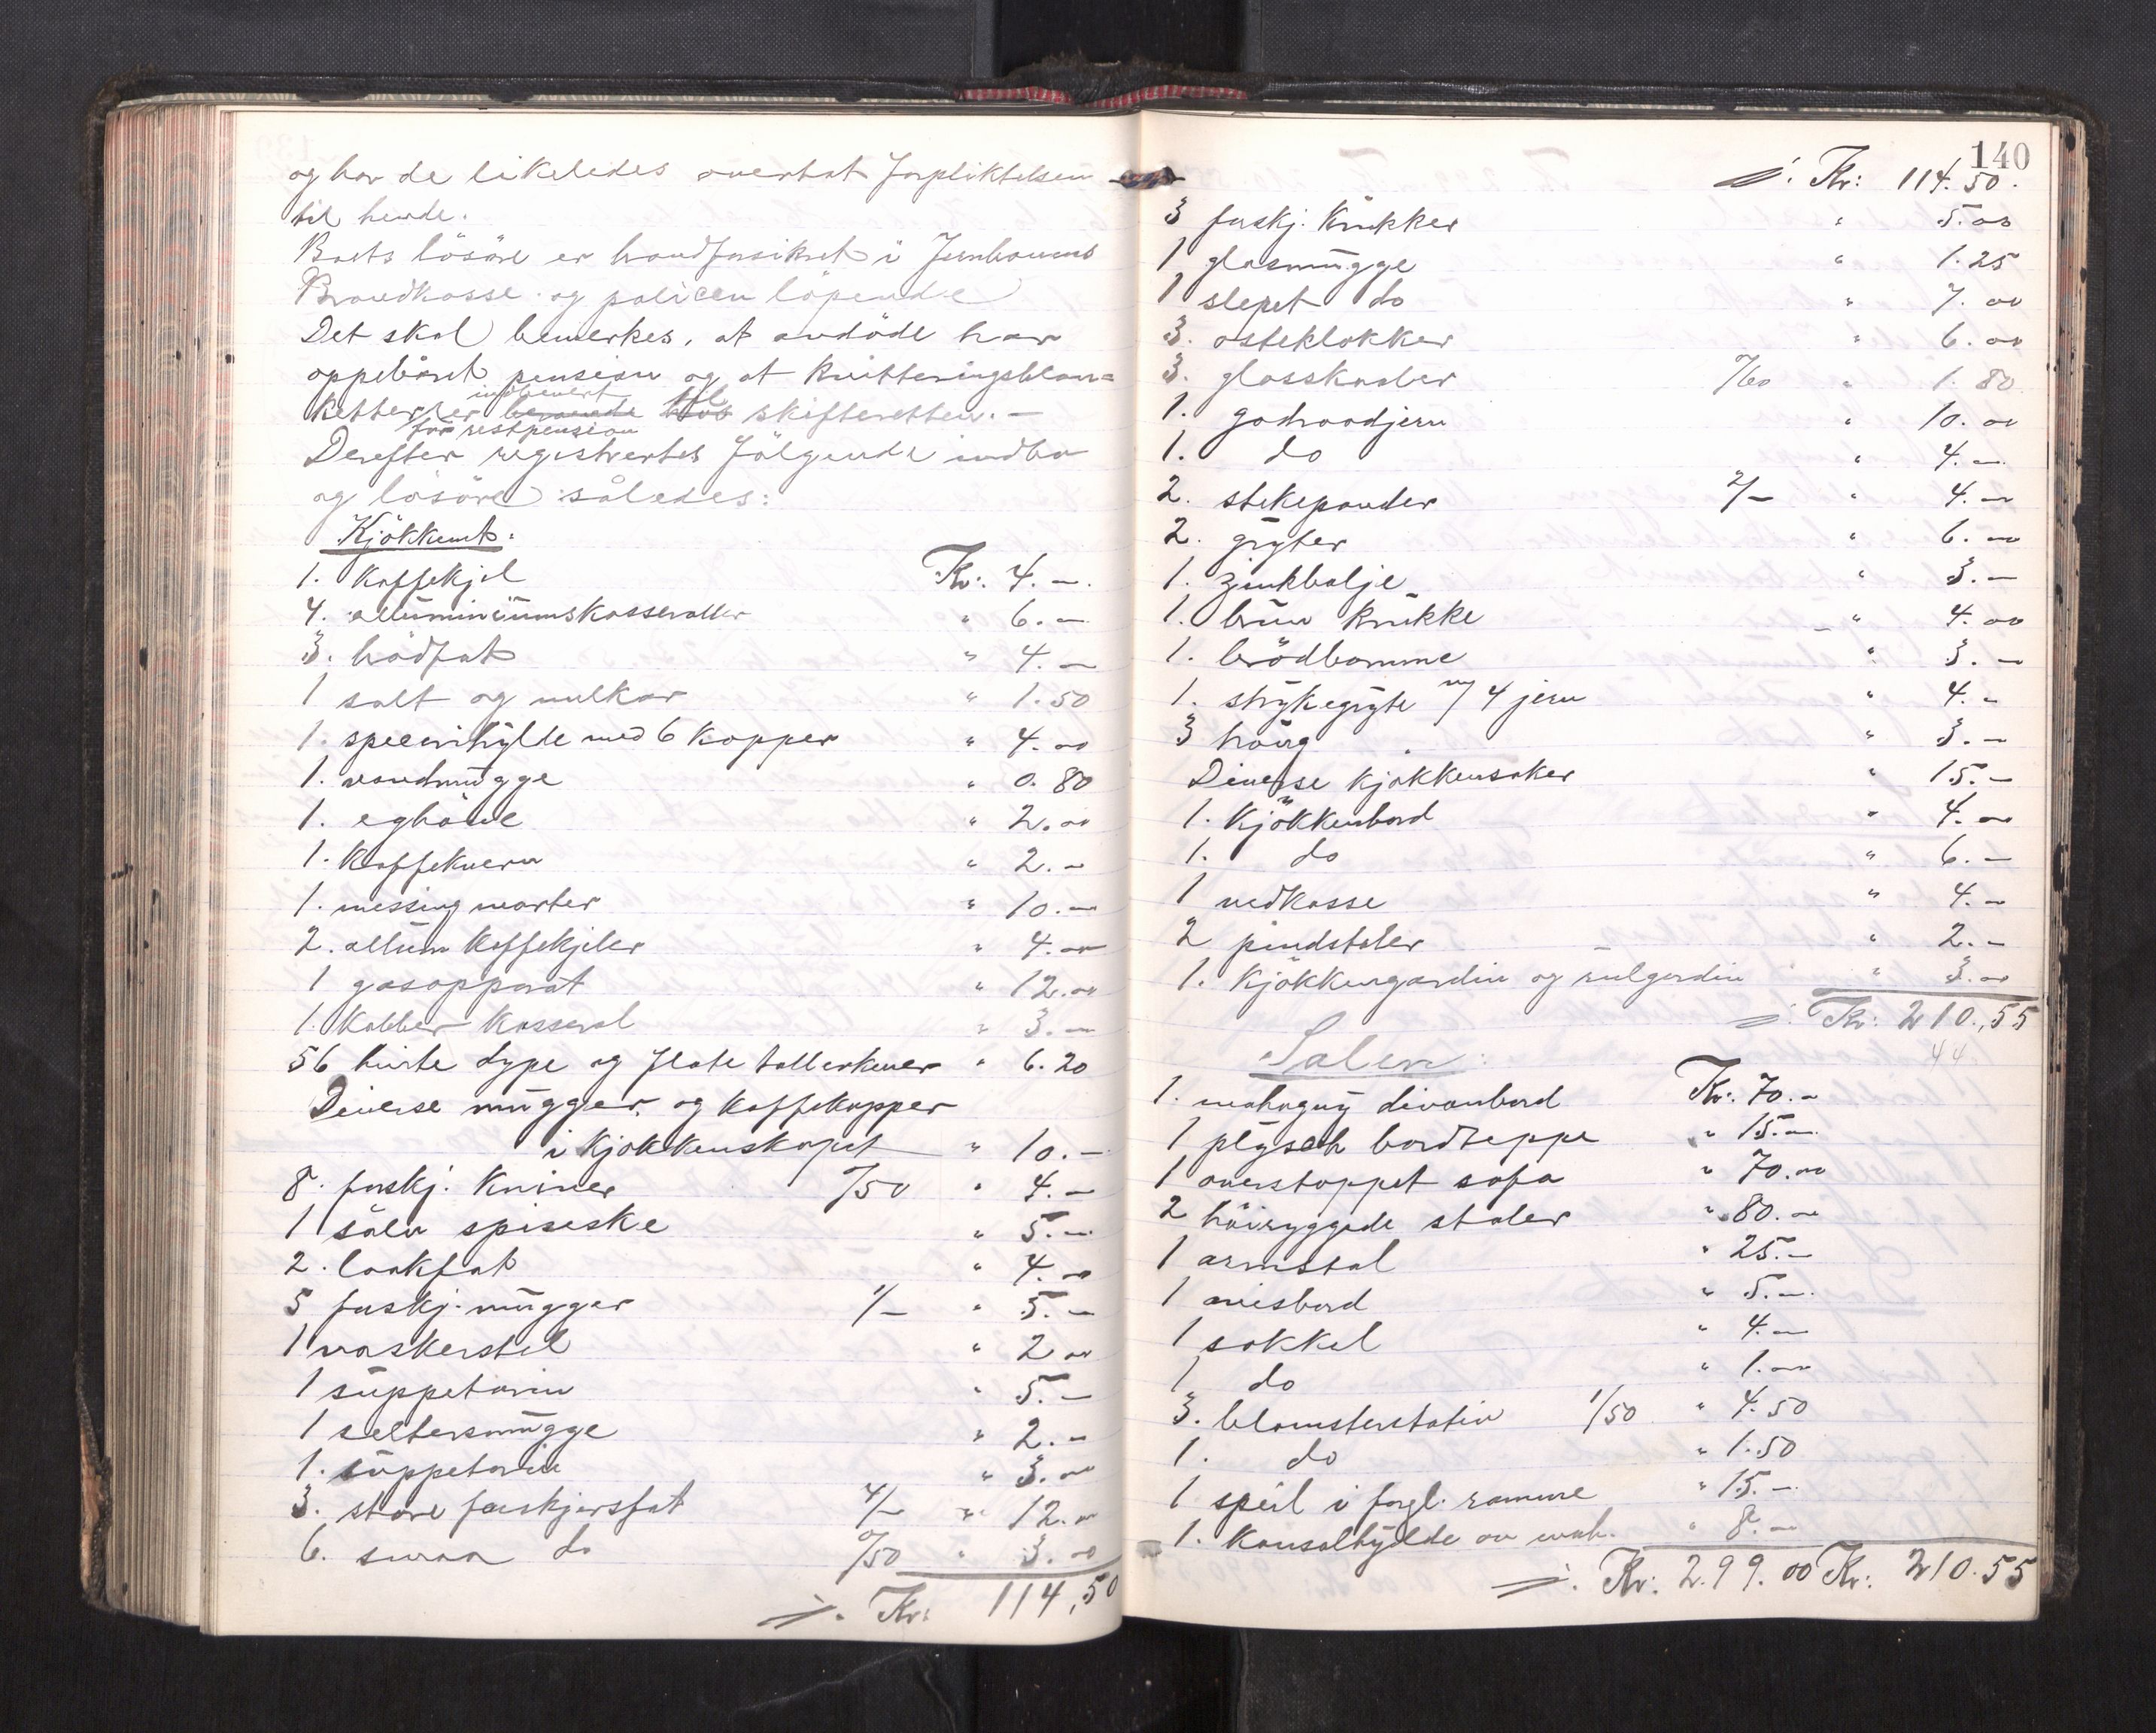 og har de likeledes overtat forpliktelsen
til hende.
Boets lösöre er brandforsikret i Jernbanens
Brandkasse og policen löpende
Det skal bemerkes, at avdöde har
oppebåret pensisn og at kvitteringsblan=
indlevert til
ketter er beroende hos skifteretten. —
for restpension
Derefter registrertes fölgende indbo
og lösöre således:
Kjökkent:
1. Kaffekjel Kr: 4. —.
4. alluminiumskasseroller " 6. —
3. brödfat " 4. —
1 salt og melkar " 1.50
1. specerihylde med 6 kopper " 4. 00
1. vandmugge " 0. 80
1. eghöne " 2. 00
1. Kaffekvern " 2. —
1. messing morter " 10. —
2. allum kaffekjeler " 4. 00
1 gasopparat " 12. 00
1. Kobber kasserol " 3. —
56 hvite dype og flate tallerkener " 6.20
Diverse mugger og kaffekopper
i kjökkenskapet " 10. —
8. forskj. kniver 0/50 " 4. —
1 sölv spiseske " 5. —
2. lookfat " 4. 00
5 forskj. mugger 1/— " 5. —
1 vaskerstel " 2 00
1 suppeterin " 5. —
1 seltersmugge " 2. —
1. suppeterin " 3. 00
3. store forskjærsfat 4/— " 12. 00
6. smaa do 0/50 " 3. 00
Kr: 114,50
140
Kr: 114.50.
3 forskj. Krukker " 5. 00
1 glasmugge " 1.25
1 slepet do " 7. 00
3. osteklokker " 6. 00
3. glasskaaler 0/60 " 1. 80
1. godraadjern " 10. 00
1. do " 4. —
2. stekepander 2/— " 4. —
2. gryter " 6. —
1. zinkbalje " 3. —
1. brun krukke " 4. 00
1. brödbomme " 3. —
1. strykegryte m/ 4 jern " 4. —
3 traug " 3. —
Diverse kjökkensaker " 15. —
1. Kjökkenbord " 4. 00
1. do " 6. —
1 vedkasse " 4. —
2 pindstoler " 2. —
1. Kjökkengardin og rulgardin " 3. 00
Kr: 210.,55
44
Salen:
1. mahogny divanbord Kr: 70. —
1 plysch bordteppe " 15. —
1 overstoppet sofa " 70. 00
2 höiryggede stoler " 80. —
1 armstol " 25. —
1 avisbord " 5. —
1 sokkel " 4. —
1 do " 1. 00
3. blomsterstativ 1/50 " 4. 50
1. do " 1.50
1 speil i forgl. ramme " 15. —
1. Konsolhylde av mah. " 8. —
Kr: 299.00 Kr: 210.55